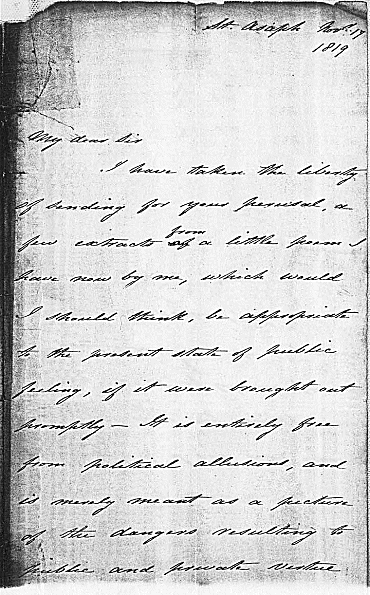 St. Asaph Nov. 17
1819
My dear Sir
I have taken the liberty
of sending for your perusal, a
few extracts of from a little poem I
have now by me, which would
I should think, be appropriate
to the present state of public
feeling, if it were brought out
promptly — It is entirely free
from political allusions, and
is merely meant as a picture
of the dangers resulting to
public and private virtue